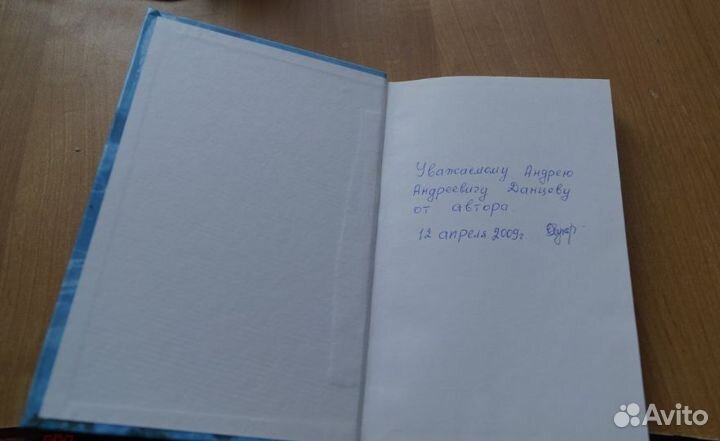 Уважаемому Андрею
Андреевичу Данцеву
от автора
12 апреля 2009г.
Avito